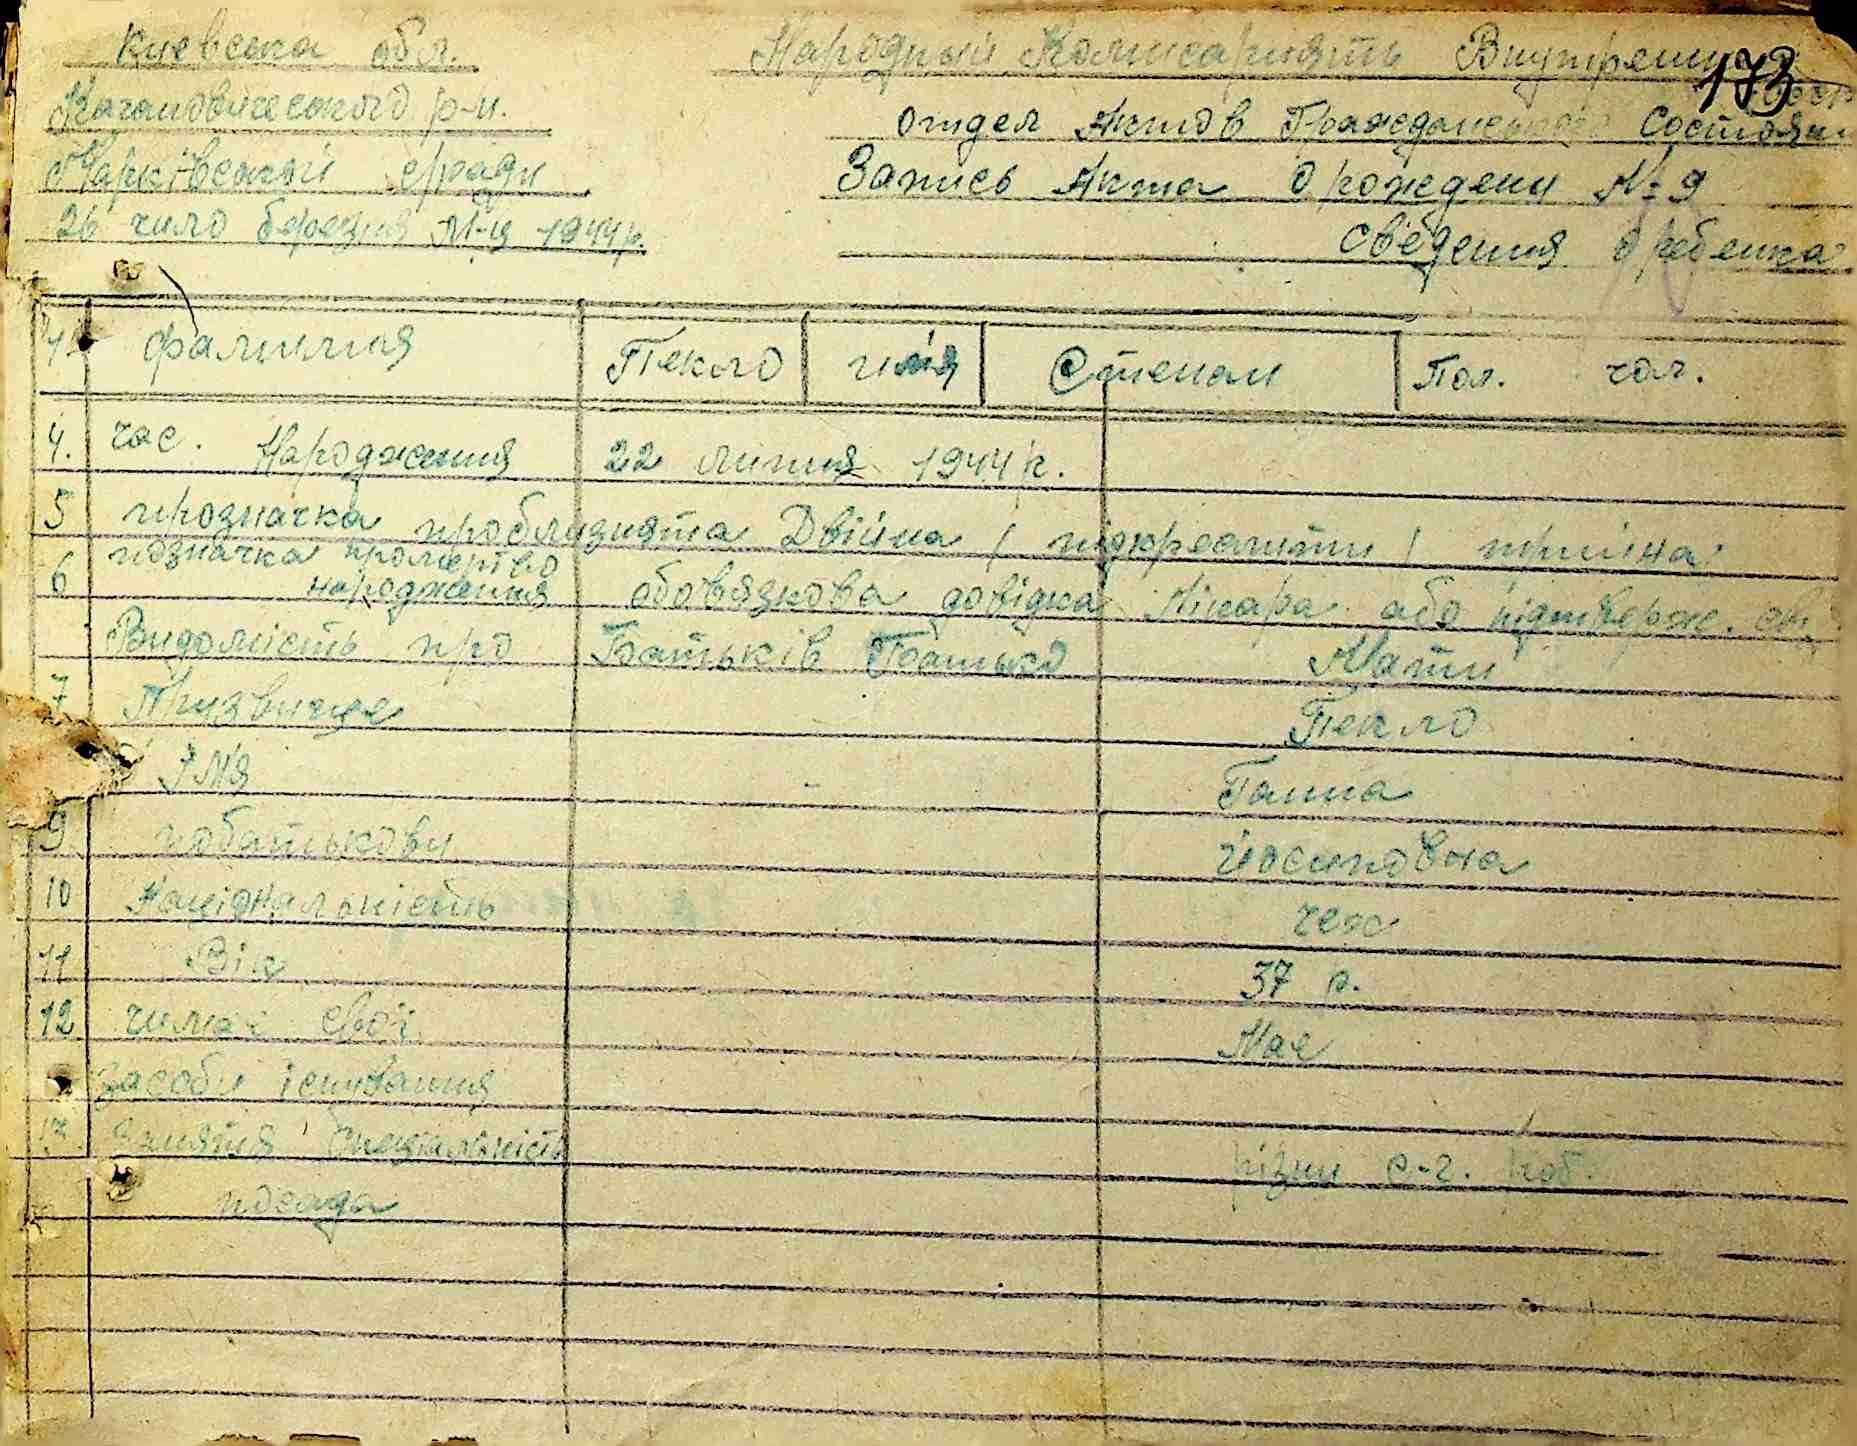 Киевська обл.
Кагановического р-н.
Марківської с/ради
26 число березня М-ця 1944 р.
Народный Комисариять Внутрени
173
отдел Актов Гражданского Состояни
Запись Акта о рождени № 9
Сведения о ребенка
фамилия Пекло имя Степан Пол. чол.
4. час. Народження 22 липня 1944 р.
5 прозначка проблизнята Двійна / підкреслити / трійна
6 позначка промертво народження обовязкова довідка Лікара або підтверж.
Видомість про Батьків Батько Мати
7 Призвище Пекло
Імя Ганна
9 побатькови Йосиповна
10 Національність чех
11 Вік 37 р.
12 чимає свої Має
засоби існування
заняття спеціальність різни с-г. роб.
посада